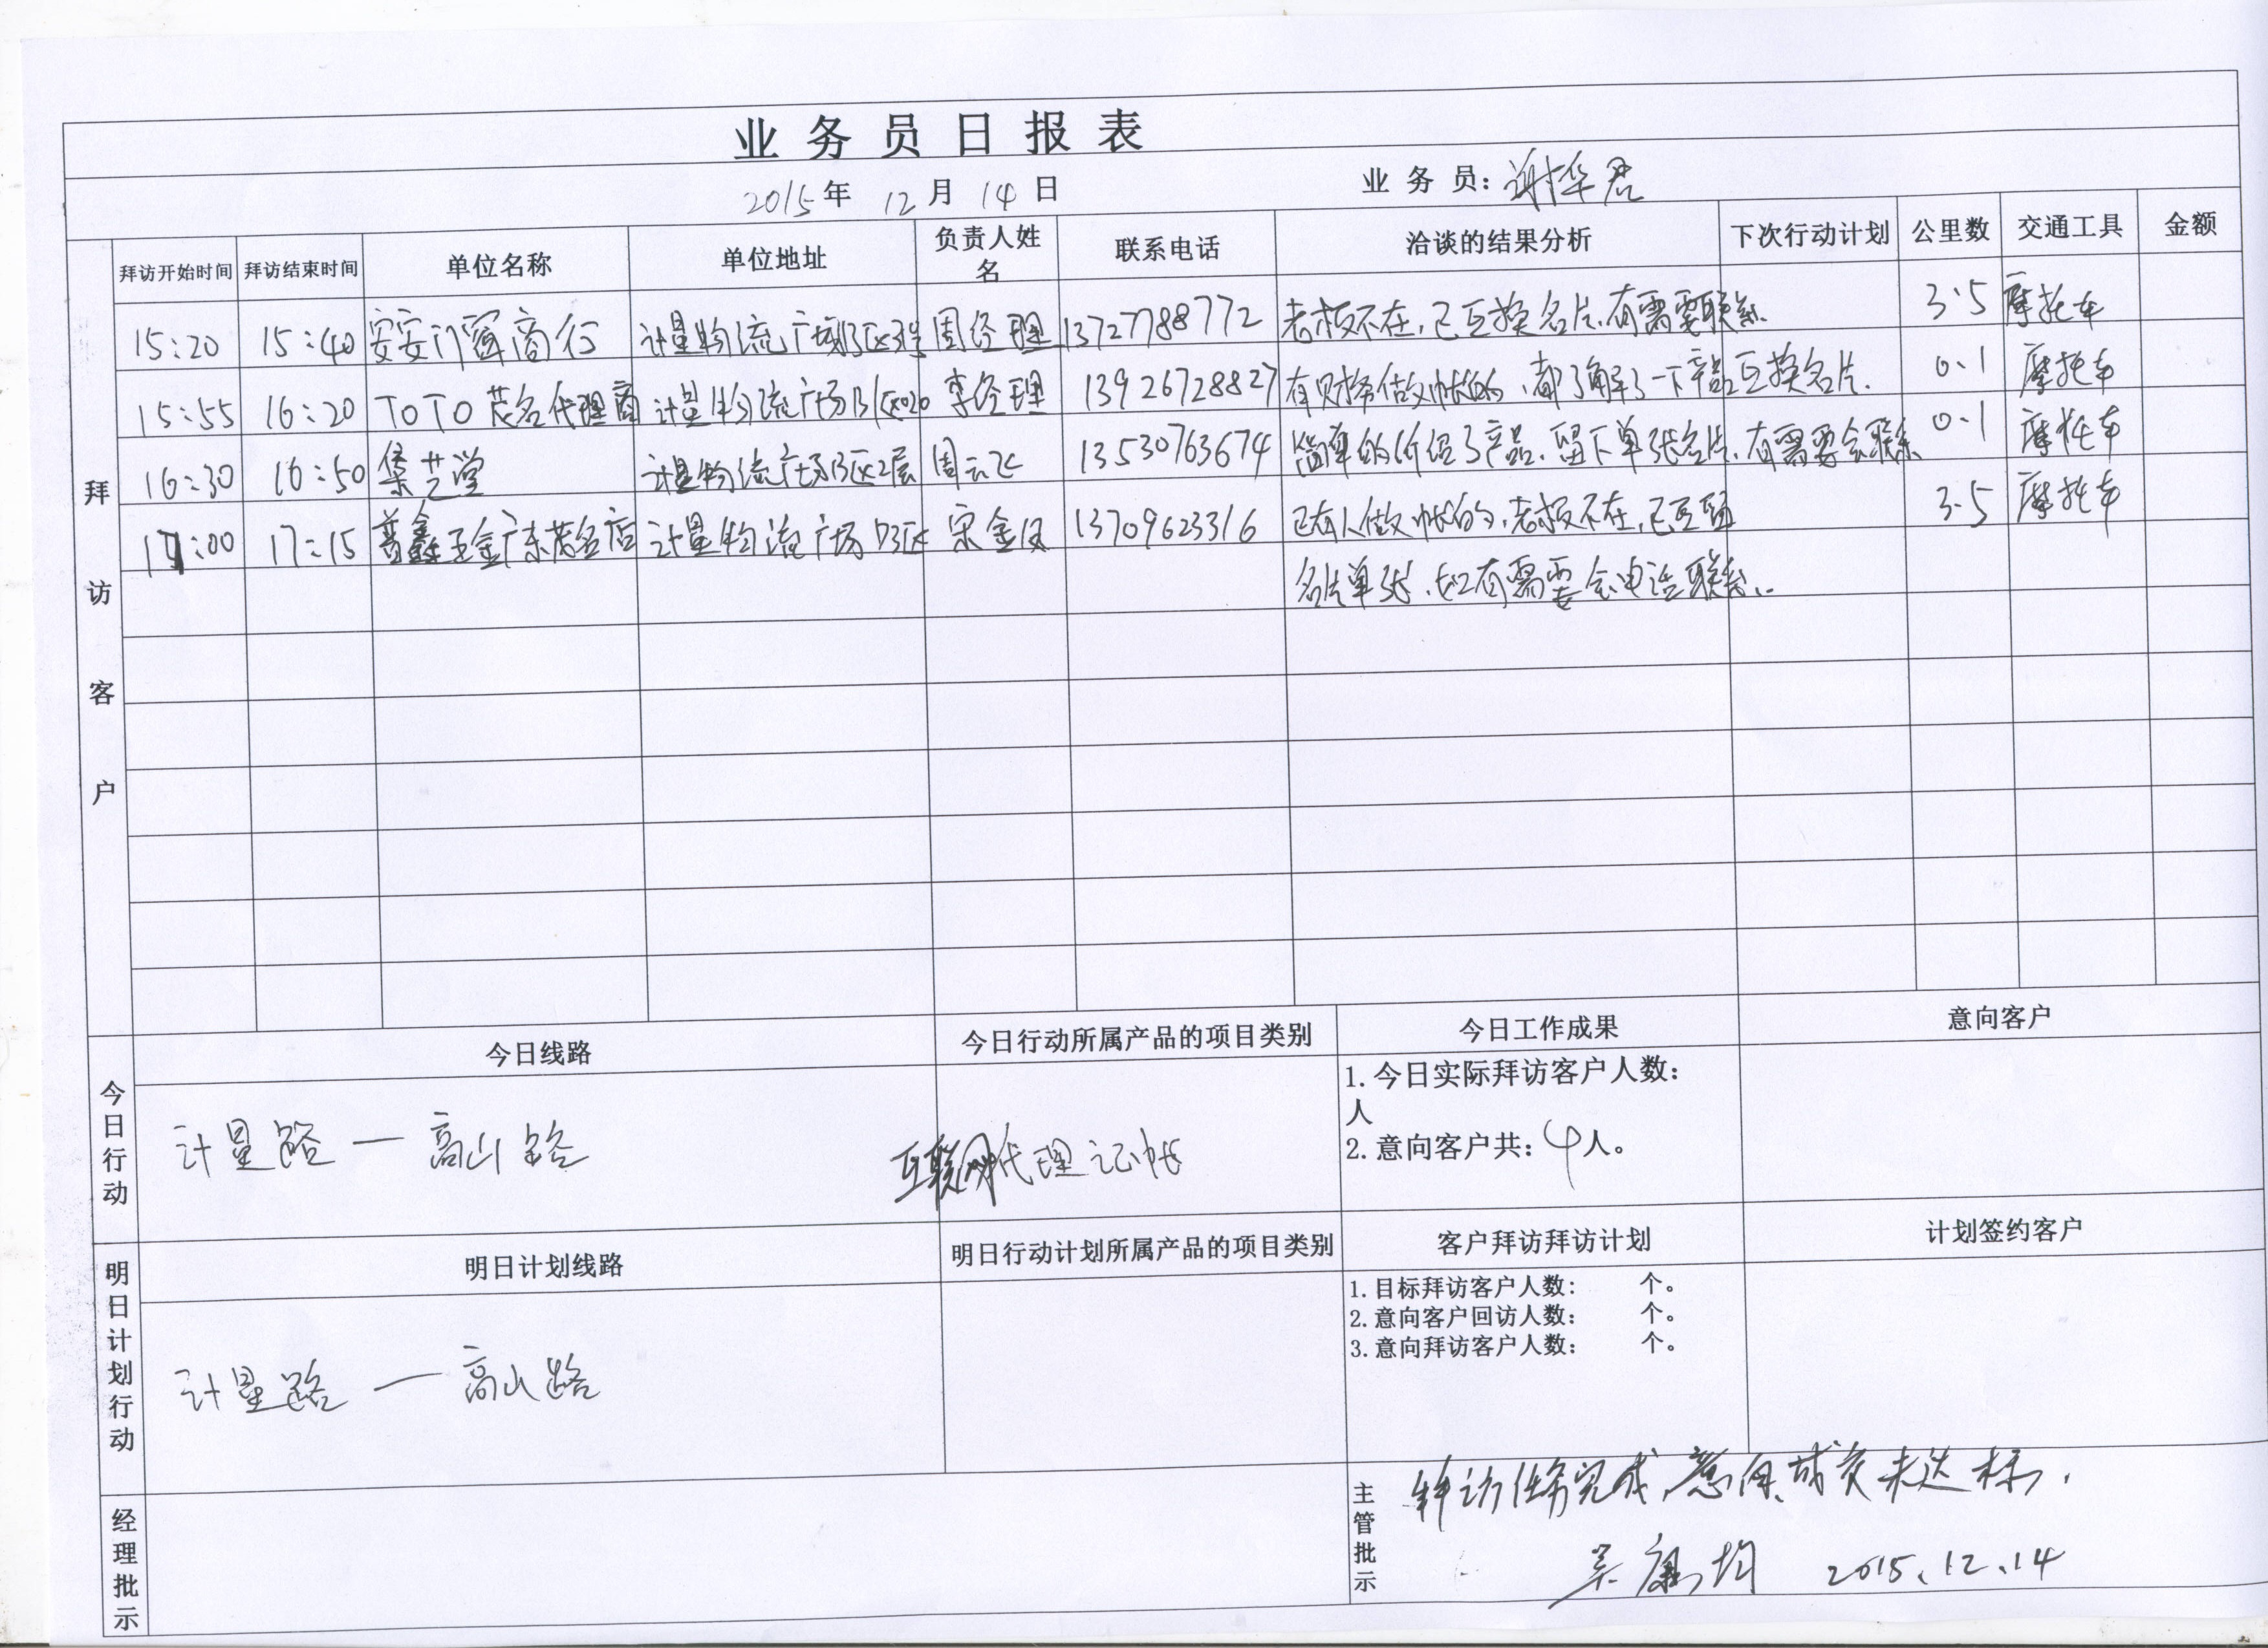 业务员日报表
2015年 12月 14日 业务员：谢华君
拜访客户 拜访开始时间 拜访结束时间 单位名称 单位地址 负责人姓名 联系电话 洽谈的结果分析 下次行动计划 公里数 交通工具 金额
15:20 15:40 安安门窗商行 计量物流广场B区 周经理 13727788772 老板不在，已互换名片，有需要联系. 3.5 摩托车
15:55 16:20 TOTO茂名代理商 计量物流广场B区 李经理 13926728827 有财务做帐的，都了解了一下产品互换名片. 0.1 摩托车
16:30 16:50 集艺堂 计量物流广场B区2层 周云飞 13530763674 简单的介绍了产品，留下单张名片，有需要会联系 0.1 摩托车
17:00 17:15 普鑫五金广东茂名店 计量物流广场D3区 宋金 13709623316 已有人做帐的，老板不在，已互留 3.5 摩托车
名片单张，如有需要会电话联系..
今日行动 今日线路 今日行动所属产品的项目类别 今日工作成果 意向客户
1.今日实际拜访客户人数：
人
计量路 — 高山路 互联网代理记帐 2.意向客户共：4人。
明日计划行动 明日计划线路 明日行动计划所属产品的项目类别 客户拜访拜访计划 计划签约客户
1.目标拜访客户人数： 个。
2.意向客户回访人数： 个。
3.意向拜访客户人数： 个。
计量路 — 高山路
经理批示 主管批示 拜访任务完成，意向、成交未达标.
2015.12.14